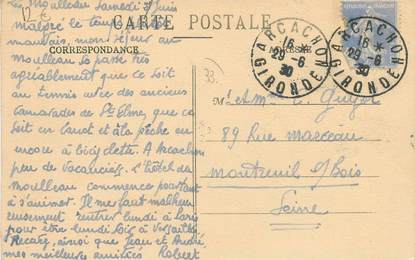 Le Moulleau Samedi 28 Juin
malgré le temps
mauvais, mon séjour au
CARTE POSTALE
CORRESPONDANCE
ADRESSE
Moulleau se passe très
agréablement que ce soit
au tennis avec des anciens
Camarades de St Elme, que ce
soit en Canot et à la pêche ou
encore à bicyclette. A Arcachon
peu de vacanciers. L'hôtel du
Moulleau commence pourtant
à s'animer. Il me faut malheu
reusement rentrer lundi à Paris
pour être lundi soir à Versailles
Recevez, ainsi que Jean et André
mes meilleures amitiés Robert
ARCACHON
16 *
29-6
30
GIRONDE
ARCACHON
16 *
29-6
30
GIRONDE
33
M. et Mme C. Guyot
89 Rue Marceau
Montreuil s/ Bois
Seine